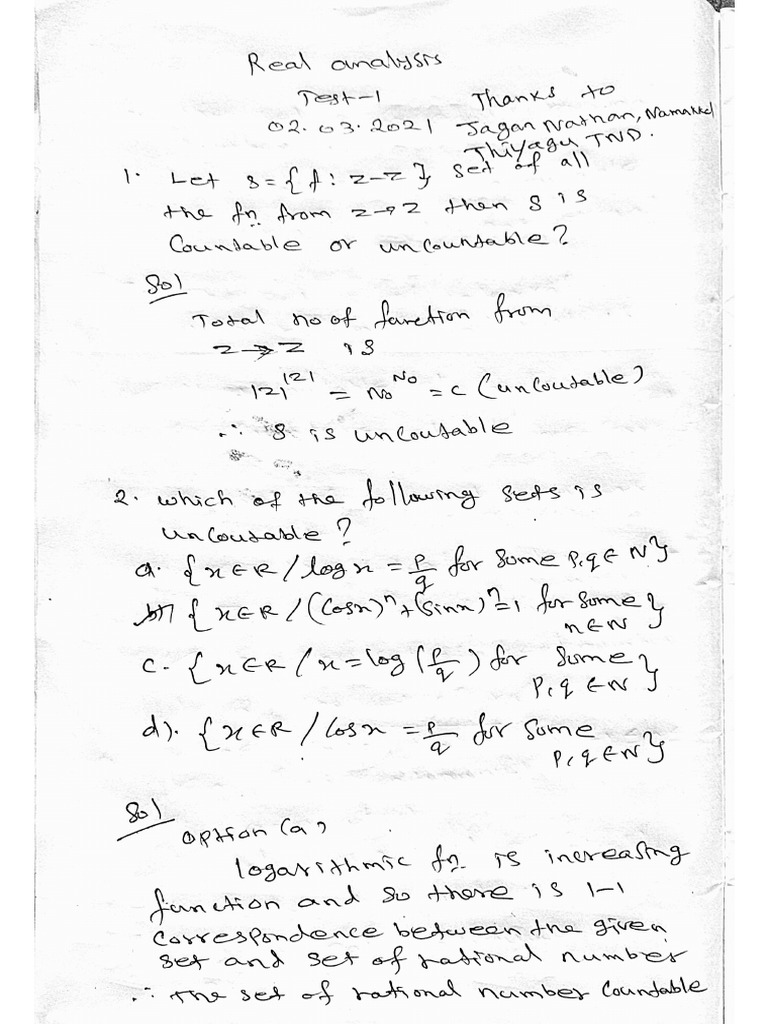 Real analysis
Test-1
Thanks to
02.03.2021 Jagan Nathan, Namakkal
Thiyagu TND.
1. Let S={f: Z-Z} set of all
the fn from Z→Z then S is
Countable or uncountable?
Sol
Total no of function from
Z→Z is
|Z|^|Z| = No^No = c (uncoutable)
∴ S is uncoutable
2. which of the following sets is
uncoutable?
a. {x∈R / log x = p/q for some p,q ∈ N}
b) {x∈R / (Cosx)^n + (Sinx)^n = 1 for some n∈N}
c. {x∈R / x = log (p/q) for some p,q ∈N}
d). {x∈R / Cosx = p/q for some p,q ∈N}
Sol
option (a)
logarithmic fn is increasing
function and so there is 1-1
correspondence between the given
set and set of rational number
∴ The set of rational number Countable